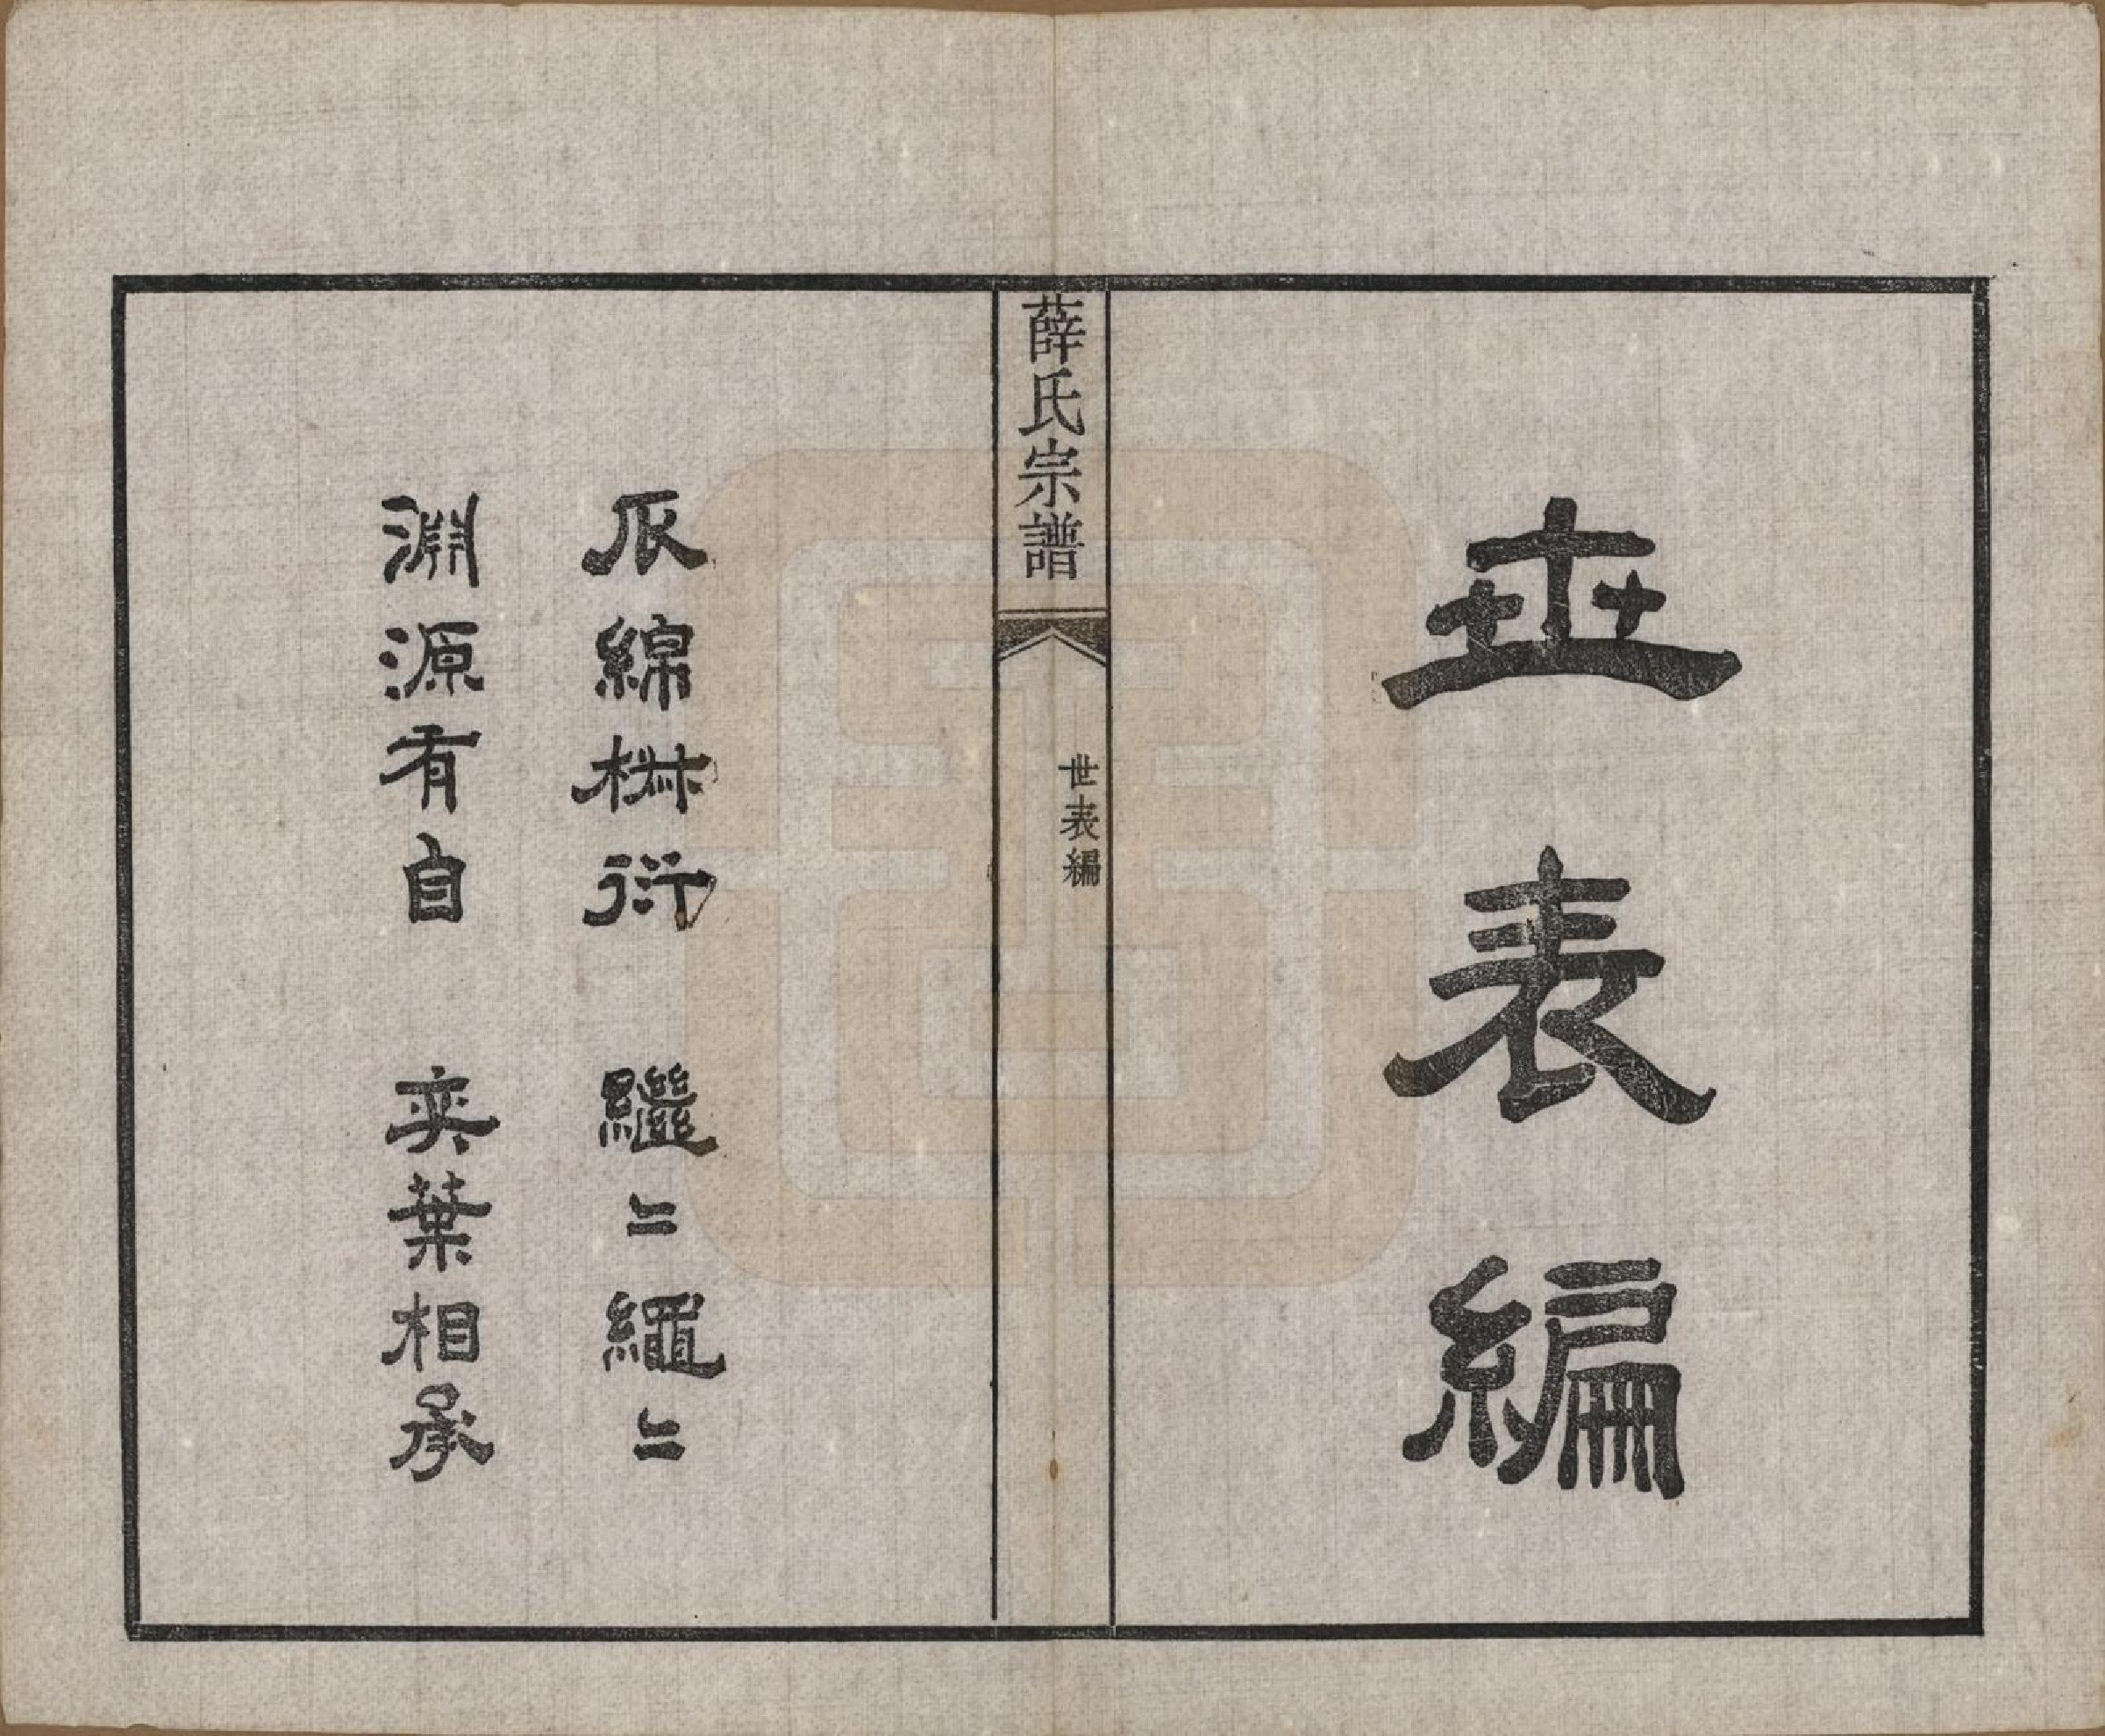 世表編
薛氏宗譜
世表編
瓜綿椒衍 繼〻繩〻
淵源有自 奕葉相承